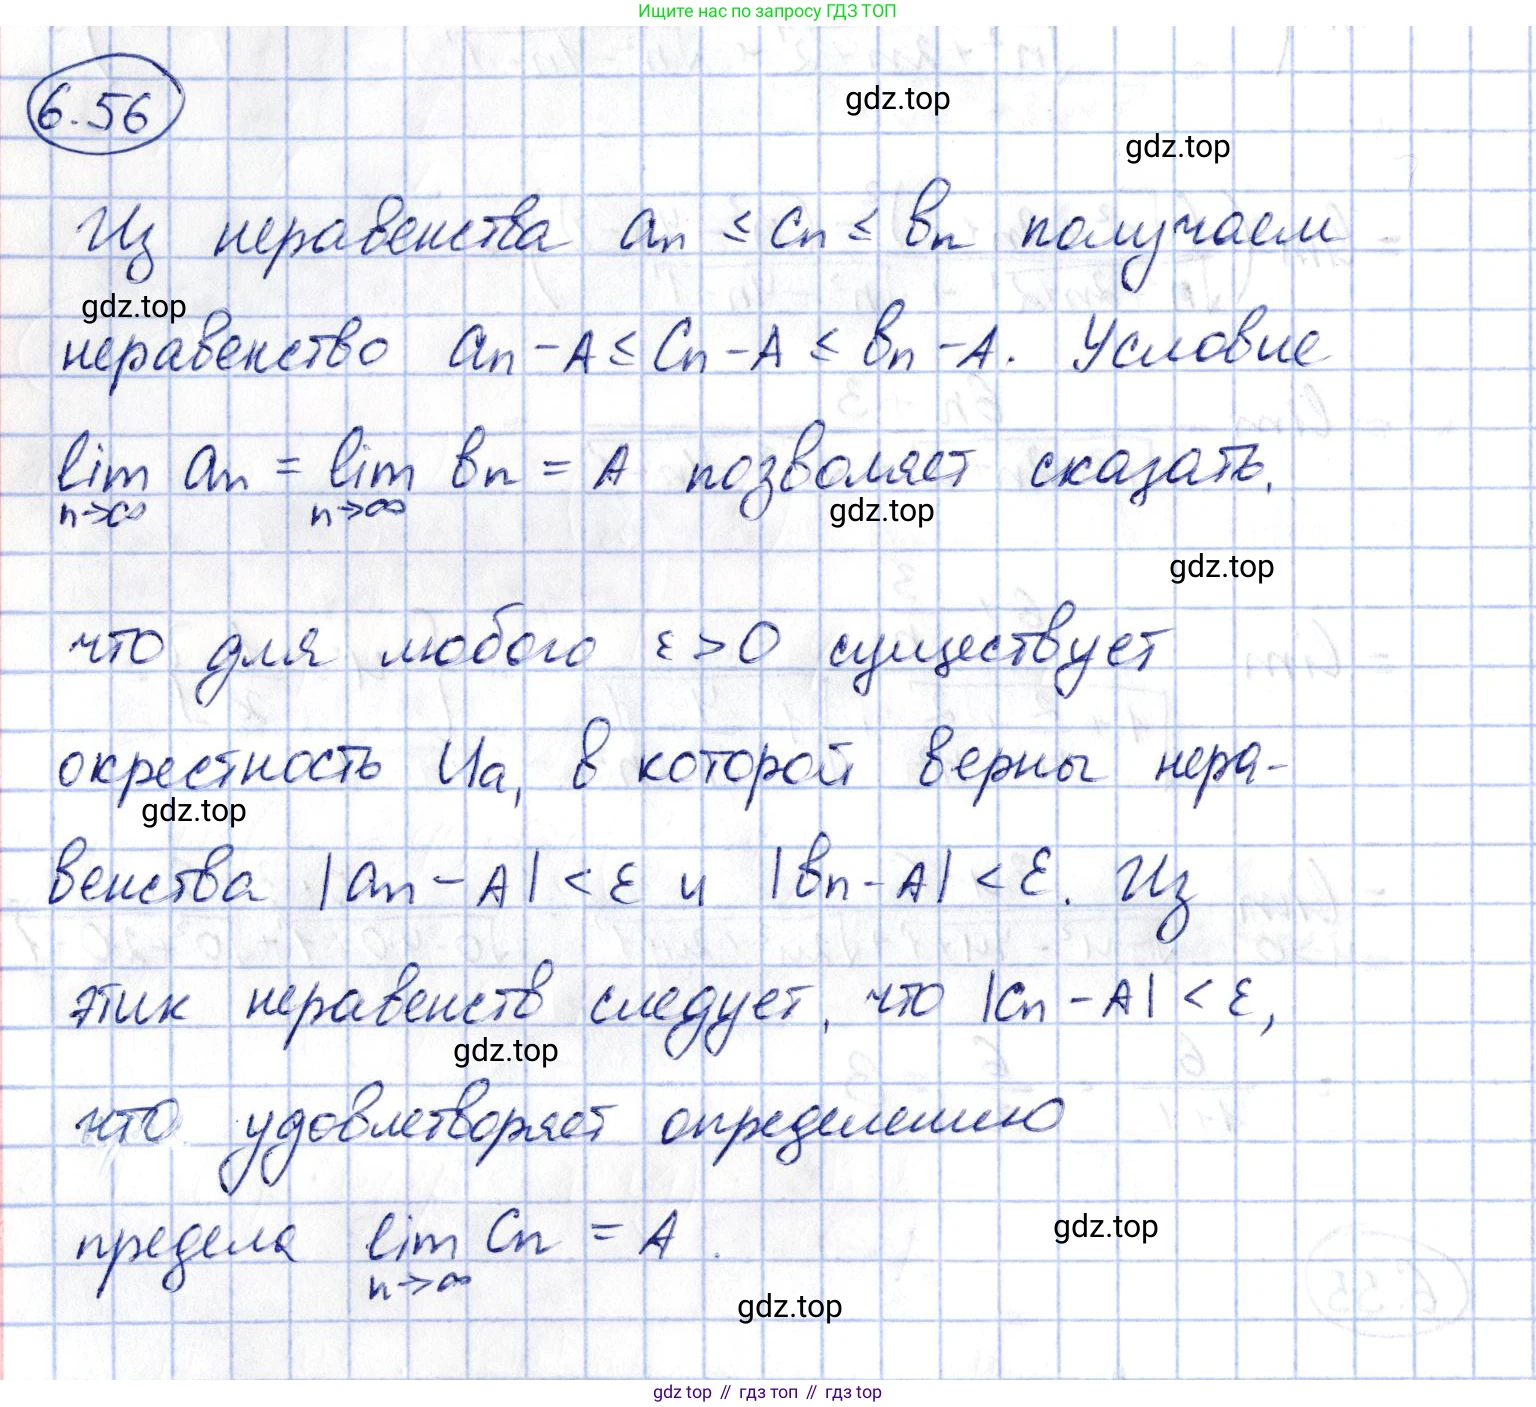 Ищите нас по запросу ГДЗ ТОП
6.56
gdz.top
gdz.top
Из неравенства aₙ ≤ cₙ ≤ bₙ получаем
gdz.top
неравенство aₙ - A ≤ cₙ - A ≤ bₙ - A. Условие
lim aₙ = lim bₙ = A позволяет сказать,
n→∞ n→∞
gdz.top
gdz.top
что для любого ε > 0 существует
окрестность Uₐ, в которой верны нера-
gdz.top
венства |aₙ - A| < ε и |bₙ - A| < ε. Из
этих неравенств следует, что |cₙ - A| < ε,
gdz.top
что удовлетворяет определению
предела lim cₙ = A.
n→∞
gdz.top
gdz.top
gdz top // гдз топ // гдз top